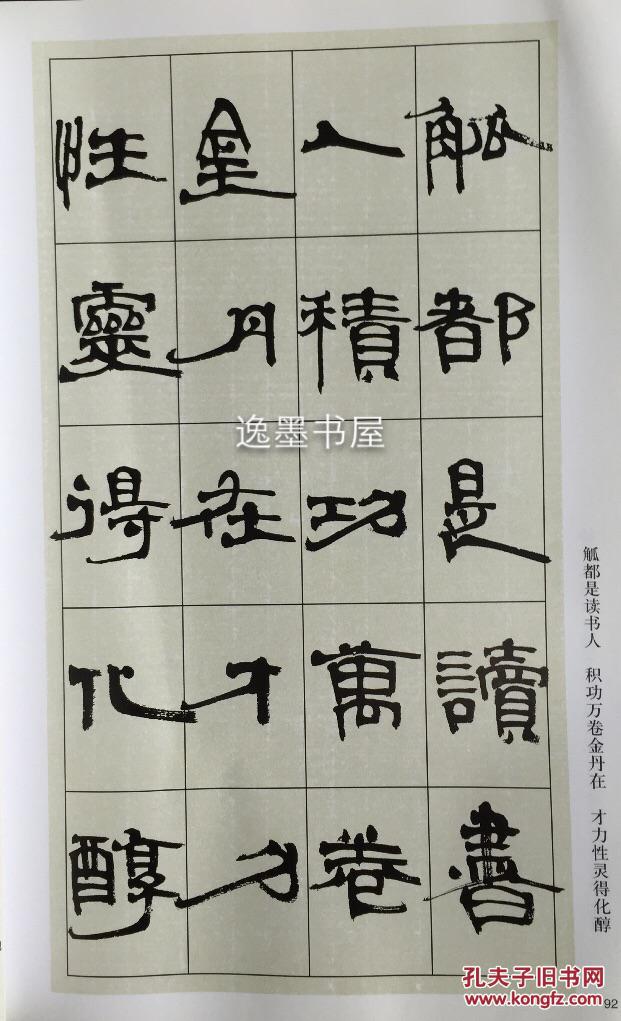 觚都是讀書
人積功萬卷
金丹在才力
性靈得化醇
逸墨书屋
觚都是读书人 积功万卷金丹在 才力性灵得化醇
孔夫子旧书网
www.kongfz.com
92